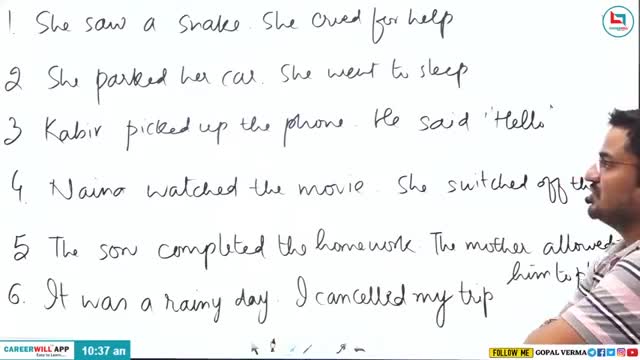 1. She saw a snake. She cried for help
2 She parked her car. She went to sleep
3 Kabir picked up the phone. He said "Hello"
4. Naina watched the movie. She switched off the
5 The son completed the homework. The mother allowed
him to
6. It was a rainy day. I cancelled my trip
CAREERWILL APP
10:37 am
FOLLOW ME GOPAL VERMA